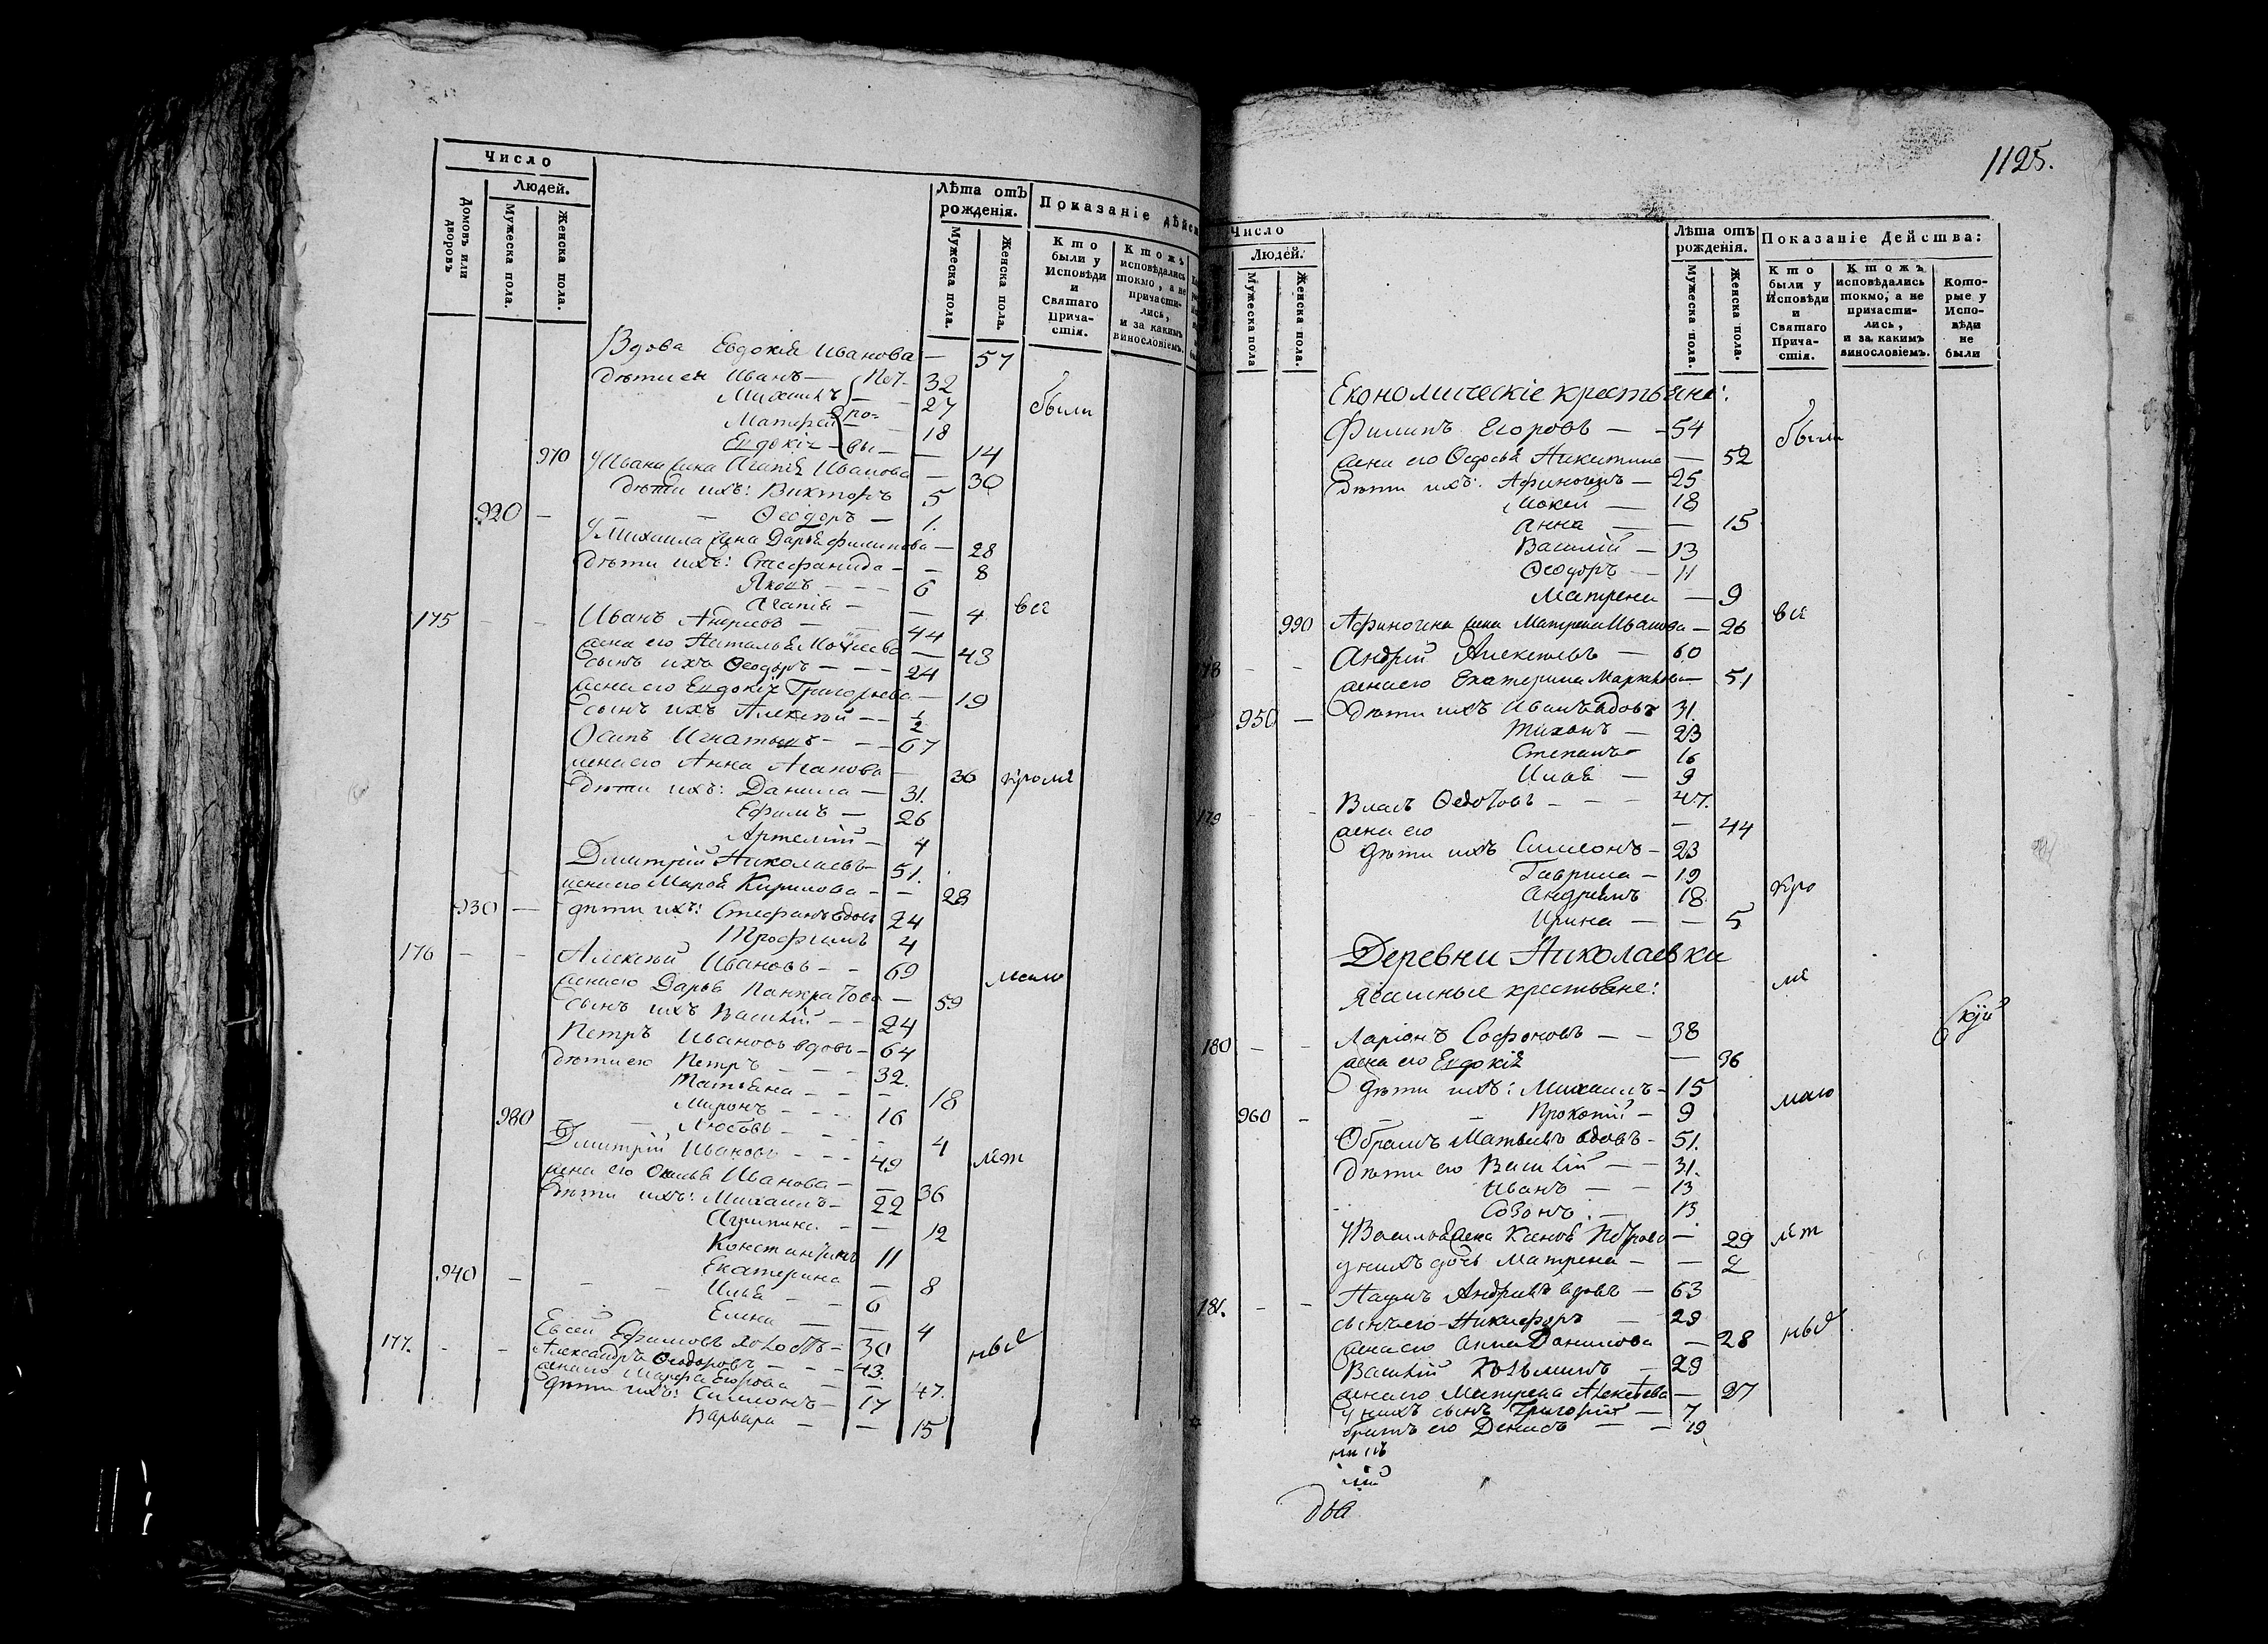 Число
Людей.
Домовъ или дворовъ
Мужеска пола.
Женска пола.
Лѣта отъ рожденія.
Мужеска пола.
Женска пола.
Показаніе дѣйс
Кто были у Исповѣди и Святаго Прича-стія.
Ктожъ исповѣдались токмо, а не причасти-лись, и за какимъ винословіемъ.
Вдова Евдокія Иванова — 57
дѣти ея Иванъ — Пет- 32
Михаилъ — 27 были
Матфей — ро- 18
Евдокія — вы — 14
970 У Ивана жена Агапія Иванова — 30
дѣти ихъ: Викторъ 5
920 — Ѳеодоръ — 1.
У Михаила жена Дарья Филипова — 28
дѣти ихъ: Стефанида — — 8
Яковъ — — — 6
Агапія — — 4 всѣ
175 — — Иванъ Андреевъ — — 44
жена его Наталья — 43
сынъ ихъ Ѳеодоръ — — — 24
жена его Евдокія Григорьева — 19
сынъ ихъ Алексѣй — — 1/2
Осипъ Игнатьевъ — — — 67
жена его Анна Агапова — 36 кромѣ
дѣти ихъ: Данила — 31.
Ефимъ — 26
Артемій — 4
Дмитрій Николаевъ — 51.
жена его Марѳа Кирилова — — 28
930 — дѣти ихъ: Стефанъ вдовъ 24
Трофимъ 4
176 — — Алексѣй Ивановъ — — 69 мало
жена его Дарья Панкратова — 59
сынъ ихъ Василій — — 24
Петръ Ивановъ вдовъ — 64
дѣти ево Петръ — — — 32.
Татьяна — — — 18
Миронъ — — — 16
980 — Любовь — — — — 4
Дмитрій Ивановъ — — — 49 лѣт
жена его Иванова — — 36
дѣти ихъ: Михаилъ — 22
Агрипина — — 12
Константинъ 11
Екатерина — 8
940 — — — Илья — — 6
Елена — — 4
Евсей Ефимовъ холостъ — 30 ныхъ
177. — — Александръ Ѳеодоровъ — — — 43.
жена его Марфа Егорова — — 47.
дѣти ихъ: Симеонъ — 17
Варвара — — 15
1125.
Число
Людей.
Мужеска пола
Женска пола.
Лѣта отъ рожденія.
Мужеска пола.
Женска пола.
Показаніе Действа:
Кто были у Исповѣди и Святаго Прича-стія.
Ктожъ исповѣдались токмо, а не причасти-лись, и за какимъ винословіемъ.
Кото-рые у Испо-вѣди не были
Економическіе крестьяне:
Филипъ Егоровъ — — 54 были
жена его Ѳедосья Никитина — 52
дѣти ихъ: Афиногенъ — 25
Мокей — 18
Анна — — 15
Василій — 13
Ѳеодоръ — 11
Матрена — 9
990 Афиногена жена Матрена Иванова — 26 всѣ
78 — — Андрей Алексѣевъ — 60
жена его Екатерина Маркова — 51
950 — дѣти ихъ Иванъ вдовъ 31.
Тихонъ — 23
Степанъ — 16
Илья — 9
179 — — Власъ Ѳедотовъ — — — 47.
жена его — 44
дѣти ихъ Симеонъ — 23
Гаврила — 19
Андреянъ 18. кро
Ирина — — 5
Деревни Николаевки
ясашные крестьяне: мѣ
180 — — Ларіонъ Софоновъ — — 38
жена его Евдокія — 36
дѣти ихъ: Михаилъ — 15 мало
960 — — Прокопій — 9
Обрамъ Матвѣевъ вдовъ — 51.
дѣти его Василій — — 31.
Иванъ — — 13
Созонъ — 13
У Василья жена Ксенья Петрова — 29 лѣт
у нихъ дочь Матрена — — 2
181. — — Наумъ Андреевъ вдовъ — 63
сынъ его Никифоръ — 29
жена его Анна Данилова — 28 ныхъ
Василій Козьминъ — 29
жена его Матрена Алексѣева — 27
у нихъ сынъ Григорій — 7
братъ его Денисъ — — 19
два